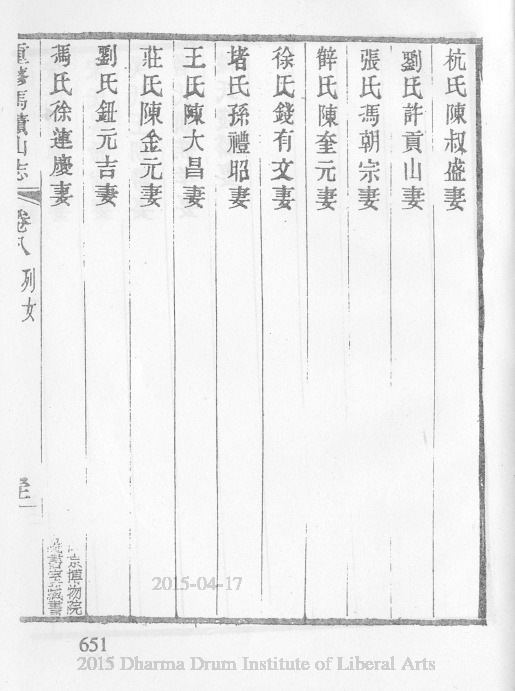 杭氏陳叔盛妻
劉氏許貢山妻
張氏馮朝宗妻
薛氏陳奎元妻
徐氏錢有文妻
堵氏孫禮昭妻
王氏陳大昌妻
莊氏陳金元妻
劉氏鈕元吉妻
馮氏徐蓮慶妻
重修馬蹟山志 卷八 列女
京博物院
藏書
2015-04-17
651
2015 Dharma Drum Institute of Liberal Arts